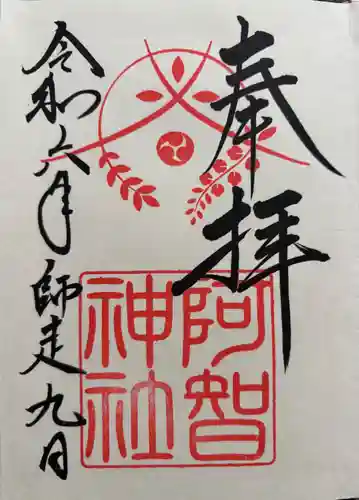 奉拝
阿智
神社
令和六年師走九日